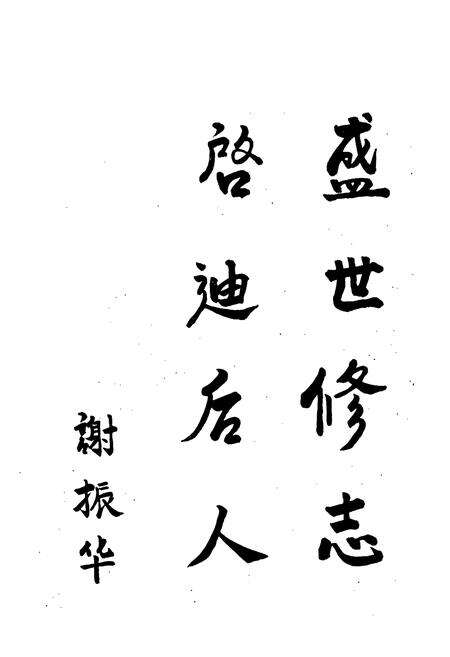 盛世修志
啓迪后人
謝振华